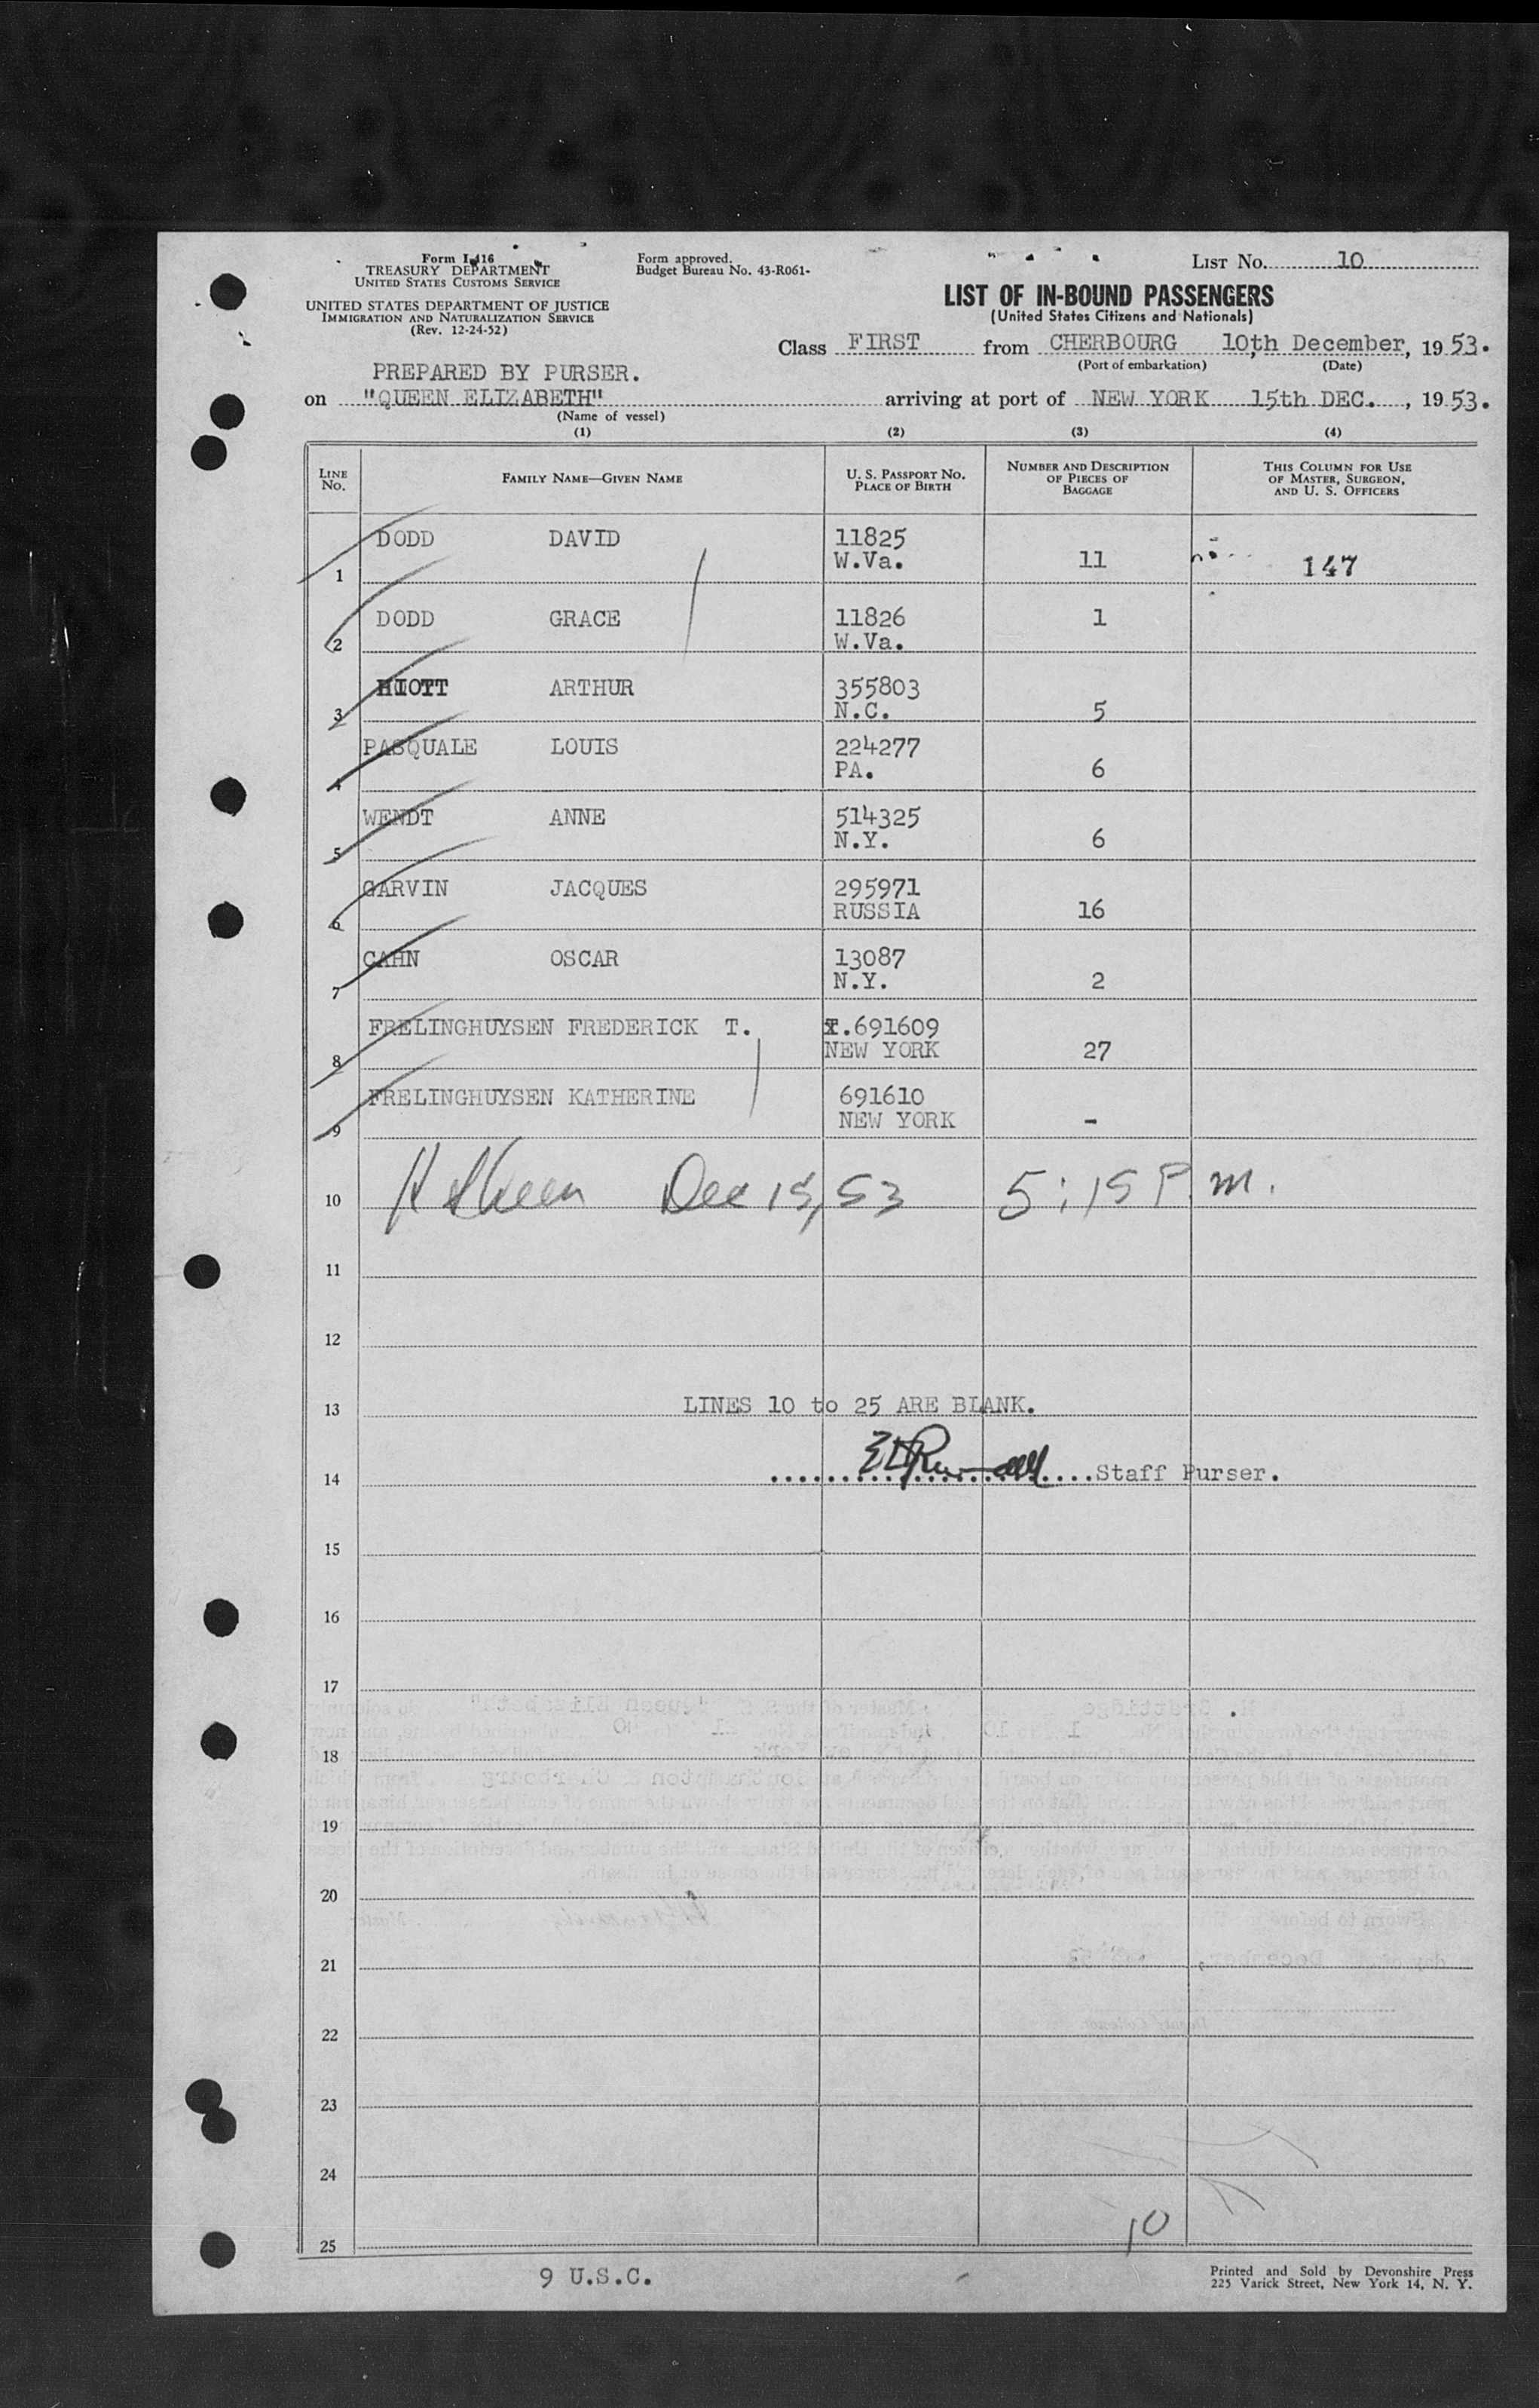 Form I-416
TREASURY DEPARTMENT
UNITED STATES CUSTOMS SERVICE
UNITED STATES DEPARTMENT OF JUSTICE
IMMIGRATION AND NATURALIZATION SERVICE
(Rev. 12-24-52)
Form approved.
Budget Bureau No. 43-R061-
LIST No. 10
LIST OF IN-BOUND PASSENGERS
(United States Citizens and Nationals)
Class FIRST from CHERBOURG 10th December, 1953.
(Port of embarkation) (Date)
PREPARED BY PURSER.
on "QUEEN ELIZABETH" arriving at port of NEW YORK 15th DEC., 1953.
(Name of vessel)
(1) (2) (3) (4)
LINE No. FAMILY NAME—GIVEN NAME U. S. PASSPORT No. PLACE OF BIRTH NUMBER AND DESCRIPTION OF PIECES OF BAGGAGE THIS COLUMN FOR USE OF MASTER, SURGEON, AND U. S. OFFICERS
1 DODD DAVID 11825 W.Va. 11 147
2 DODD GRACE 11826 W.Va. 1
3 HIOTT ARTHUR 355803 N.C. 5
4 PASQUALE LOUIS 224277 PA. 6
5 WENDT ANNE 514325 N.Y. 6
6 GARVIN JACQUES 295971 RUSSIA 16
7 CAHN OSCAR 13087 N.Y. 2
8 FRELINGHUYSEN FREDERICK T. .691609 NEW YORK 27
9 FRELINGHUYSEN KATHERINE 691610 NEW YORK -
10 Dec 15, 53 5:15 P.m.
11
12
13 LINES 10 to 25 ARE BLANK.
14 Staff Purser.
15
16
17
18
19
20
21
22
23
24
10
25
9 U.S.C.
Printed and Sold by Devonshire Press
225 Varick Street, New York 14, N. Y.